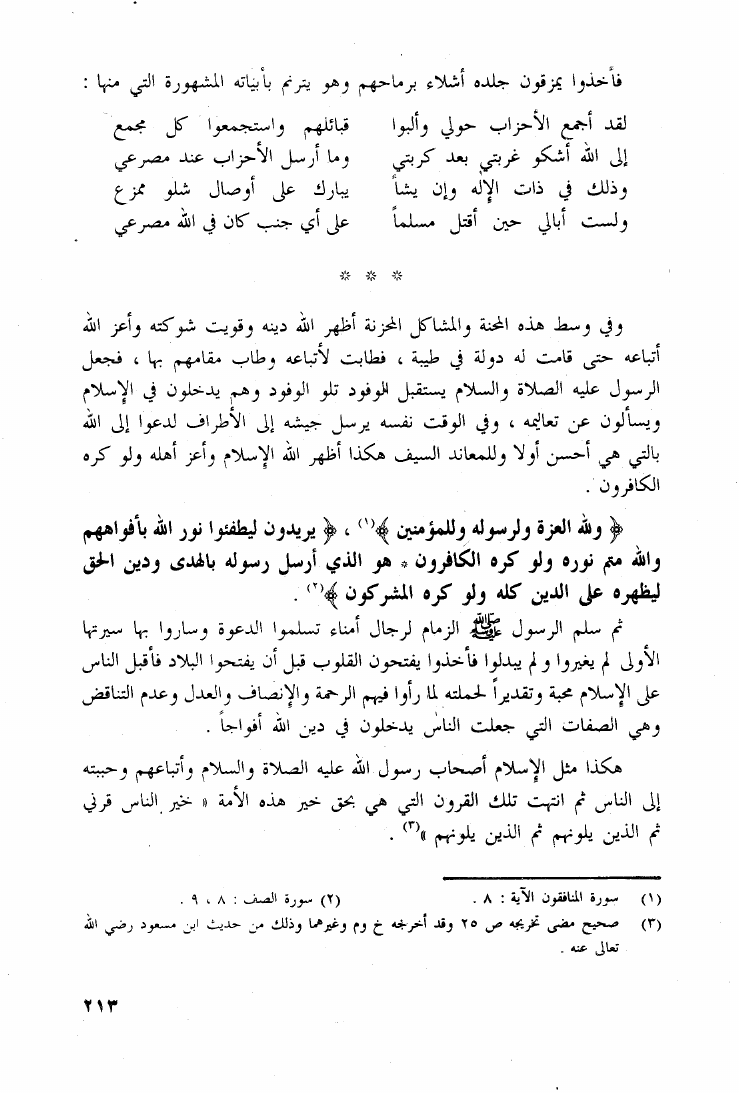 فأخذوا يمزقون جلده أشلاء برماحهم وهو يترنم بأبياته المشهورة التي منها :
لقد أجمع الأحزاب حولي وألبوا قبائلهم واستجمعوا كل مجمع
إلى الله أشكو غربتي بعد كربتي وما أرسل الأحزاب عند مصرعي
وذلك في ذات الإله وإن يشأ يبارك على أوصال شلو ممزع
ولست أبالي حين أقتل مسلماً على أي جنب كان في الله مصرعي
* * *
وفي وسط هذه المحنة والمشاكل المحزنة أظهر الله دينه وقويت شوكته وأعز الله
أتباعه حتى قامت له دولة في طيبة ، فطابت لأتباعه وطاب مقامهم بها ، فجعل
الرسول عليه الصلاة والسلام يستقبل الوفود تلو الوفود وهم يدخلون في الإسلام
ويسألون عن تعاليمه ، وفي الوقت نفسه يرسل جيشه إلى الأطراف لدعوا إلى الله
بالتي هي أحسن أولا وللمعاند السيف هكذا أظهر الله الإسلام وأعز أهله ولو كره
الكافرون .
﴿ ولله العزة ولرسوله وللمؤمنين ﴾(١) ، ﴿ يريدون ليطفئوا نور الله بأفواههم
والله متم نوره ولو كره الكافرون * هو الذي أرسل رسوله بالهدى ودين الحق
ليظهره على الدين كله ولو كره المشركون ﴾(٢) .
ثم سلم الرسول ﷺ الزمام لرجال أمناء تسلموا الدعوة وساروا بها سيرتها
الأولى لم يغيروا ولم يبدلوا فأخذوا يفتحون القلوب قبل أن يفتحوا البلاد فأقبل الناس
على الإسلام محبة وتقديراً لحملته لما رأوا فيهم الرحمة والإنصاف والعدل وعدم التناقض
وهي الصفات التي جعلت الناس يدخلون في دين الله أفواجاً .
هكذا مثل الإسلام أصحاب رسول الله عليه الصلاة والسلام وأتباعهم وحببته
إلى الناس ثم انتهت تلك القرون التي هي بحق خير هذه الأمة « خير الناس قرني
ثم الذين يلونهم ثم الذين يلونهم »(٣) .
(١) سورة المنافقون الآية : ٨ . (٢) سورة الصف : ٨ ، ٩ .
(٣) صحيح مضى تخريجه ص ٢٥ وقد أخرجه خ وم وغيرهما وذلك من حديث ابن مسعود رضي الله
تعالى عنه .
٢١٣